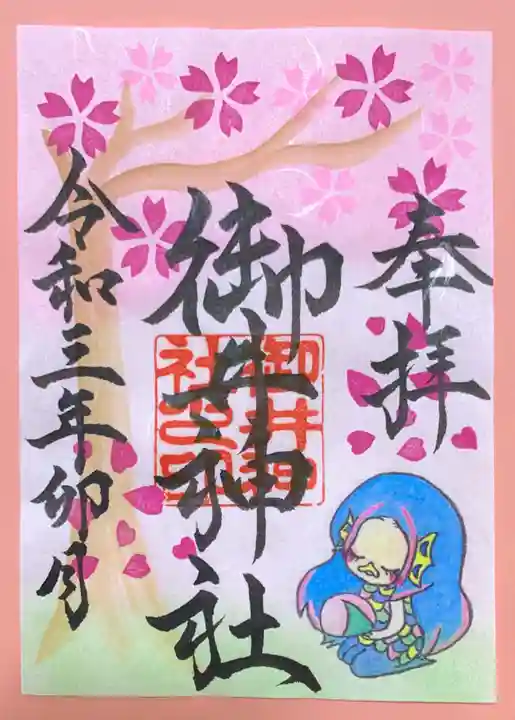 奉拝
御井神社
令和三年卯月
御井神
社之印